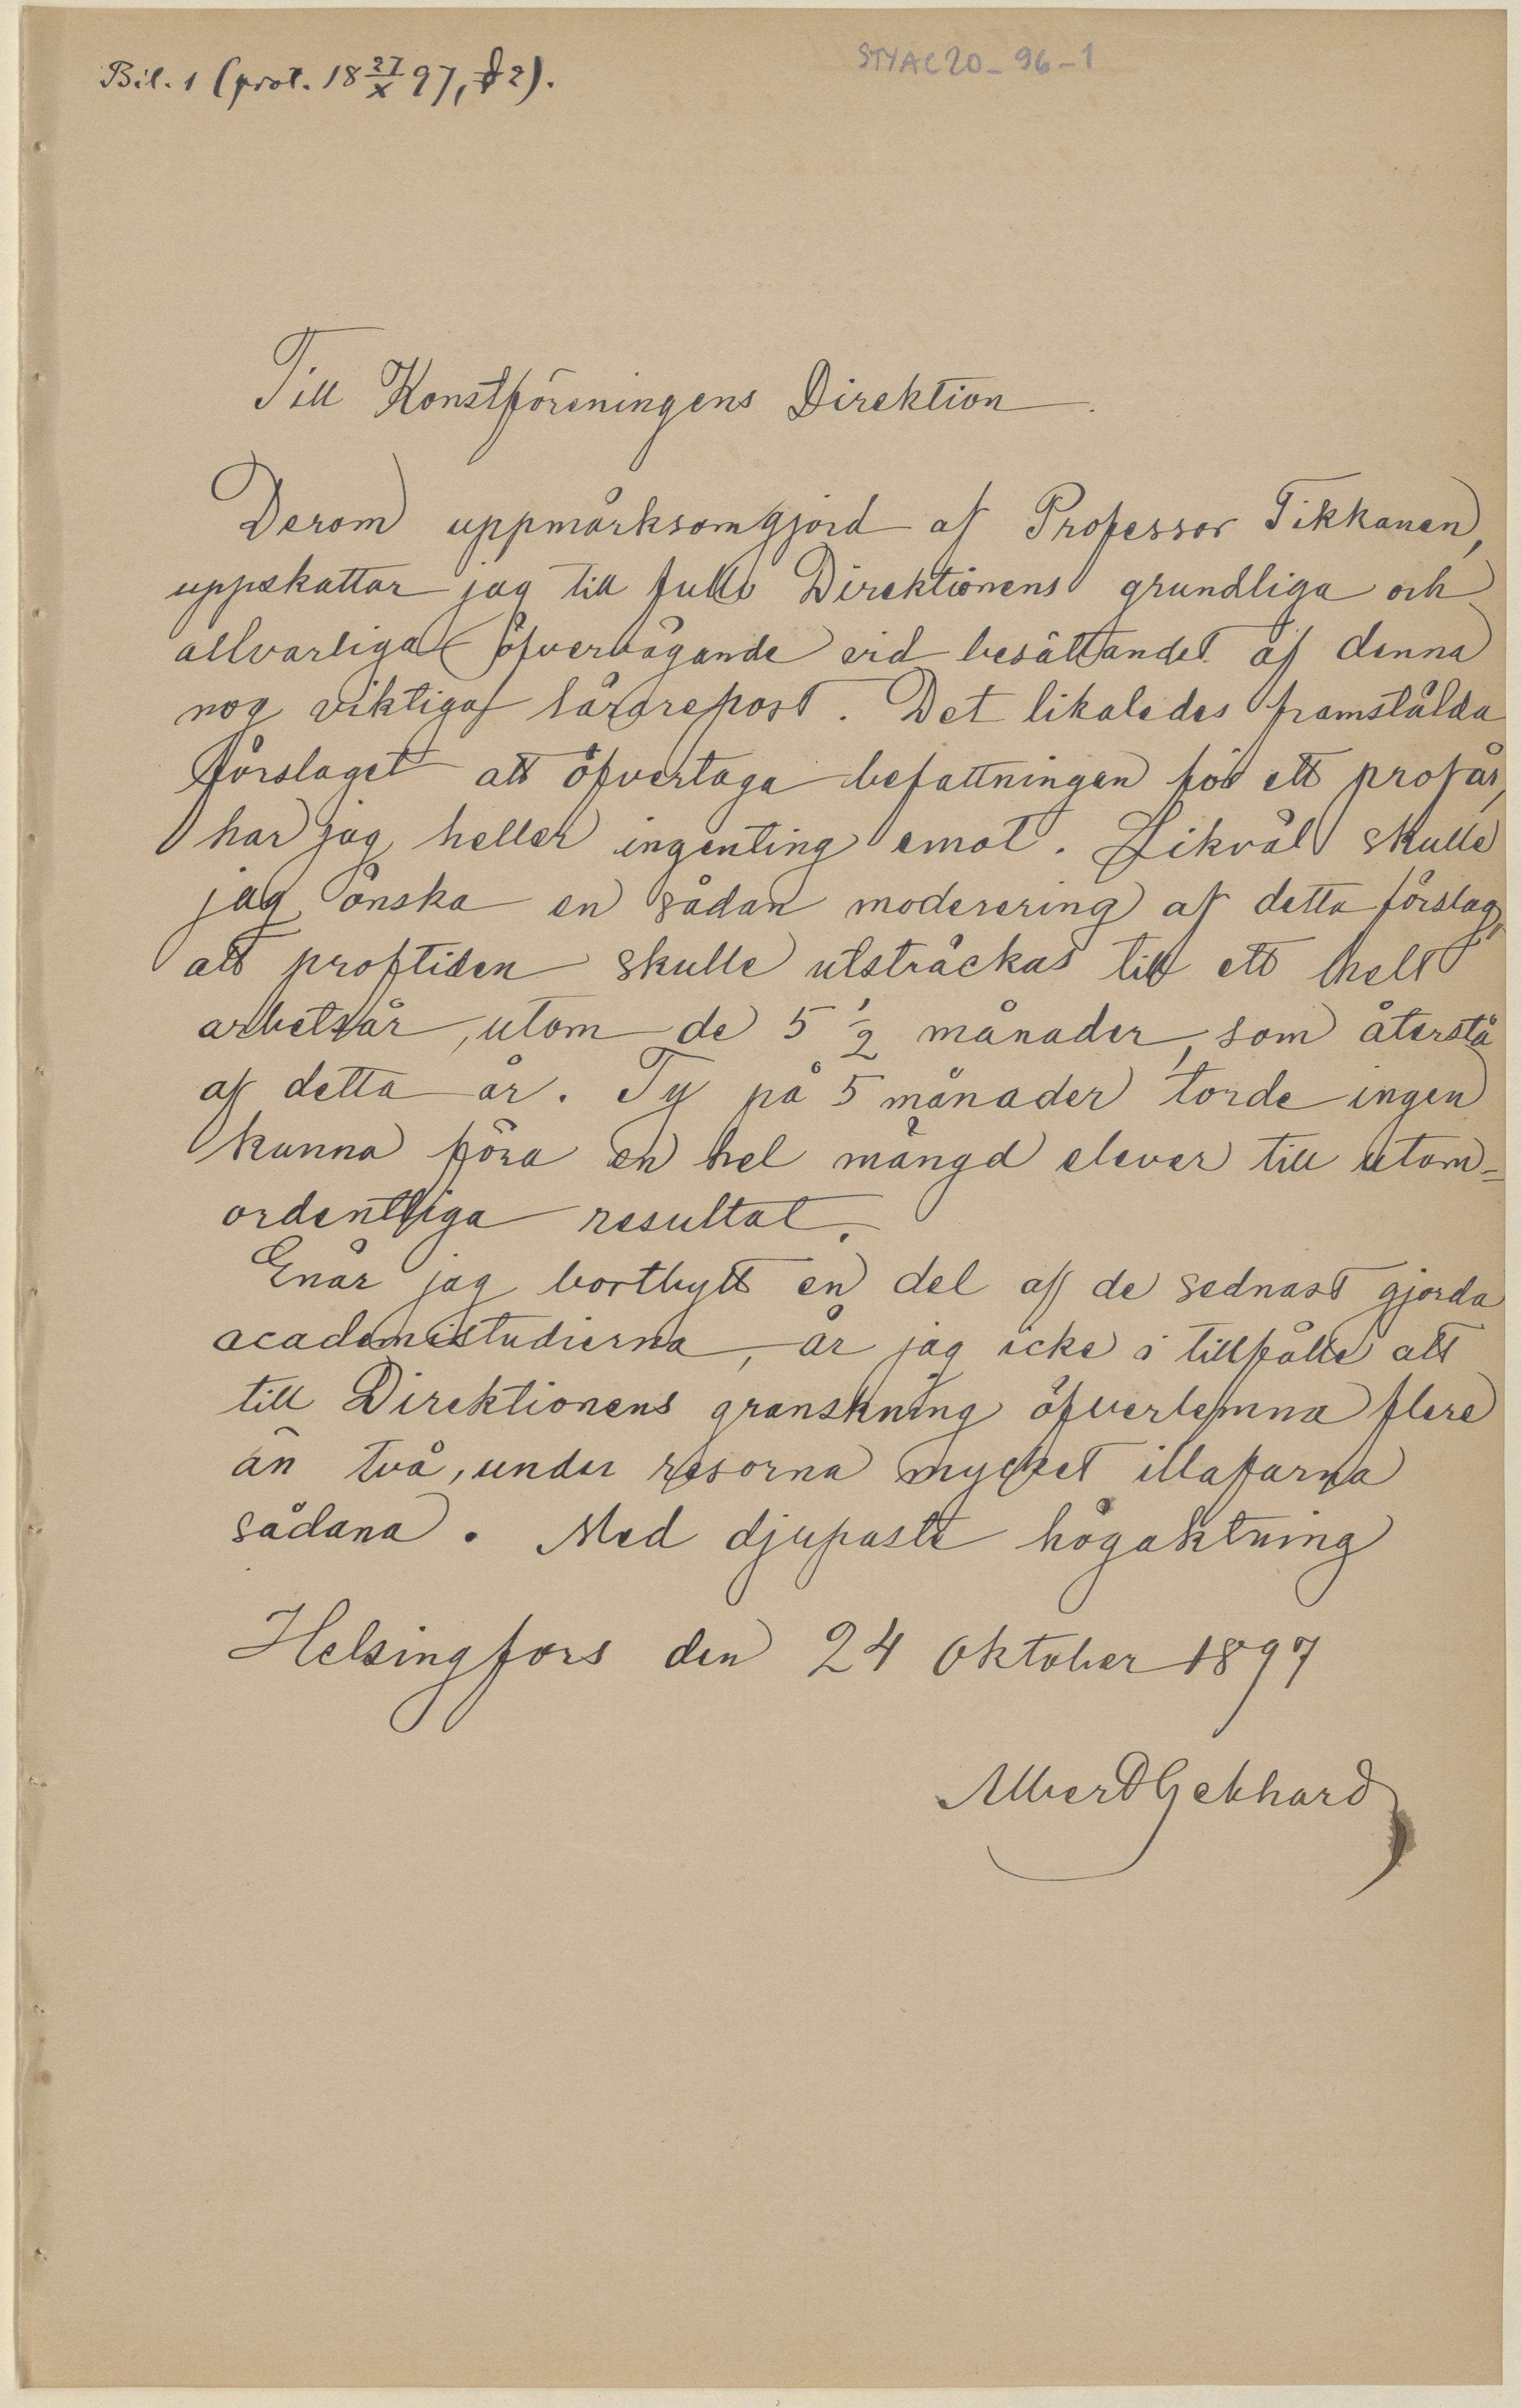 Bil. 1 (prot. 18 27/X 97, § 2).
STYAC20_96-1
Till Konstföreningens Direktion.
Derom uppmärksomgjord af Professor Tikkanen,
uppskattar jag till fullo Direktionens grundliga och
allvarliga öfvervägande vid besättandet af denna
nog viktiga lärarepost. Det likaledes framstälda
förslaget att öfvertaga befattningen för ett profår,
har jag heller ingenting emot. Likväl skulle
jag önska en sådan moderering af detta förslag,
att proftiden skulle utsträckas till ett helt
arbetsår, utom de 5 1/2 månader, som återstå
af detta år. Ty på 5 månader torde ingen
kunna föra en hel mängd elever till utom=
ordentliga resultat.
Enär jag bortbytt en del af de sednast gjorda
academistudierna, är jag icke i tillfälle att
till Direktionens granskning öfverlemna flere
än två, under resorna mycket illafarna
sådana. Med djupaste högaktning
Helsingfors den 24 Oktober 1897
Albert Gebhard